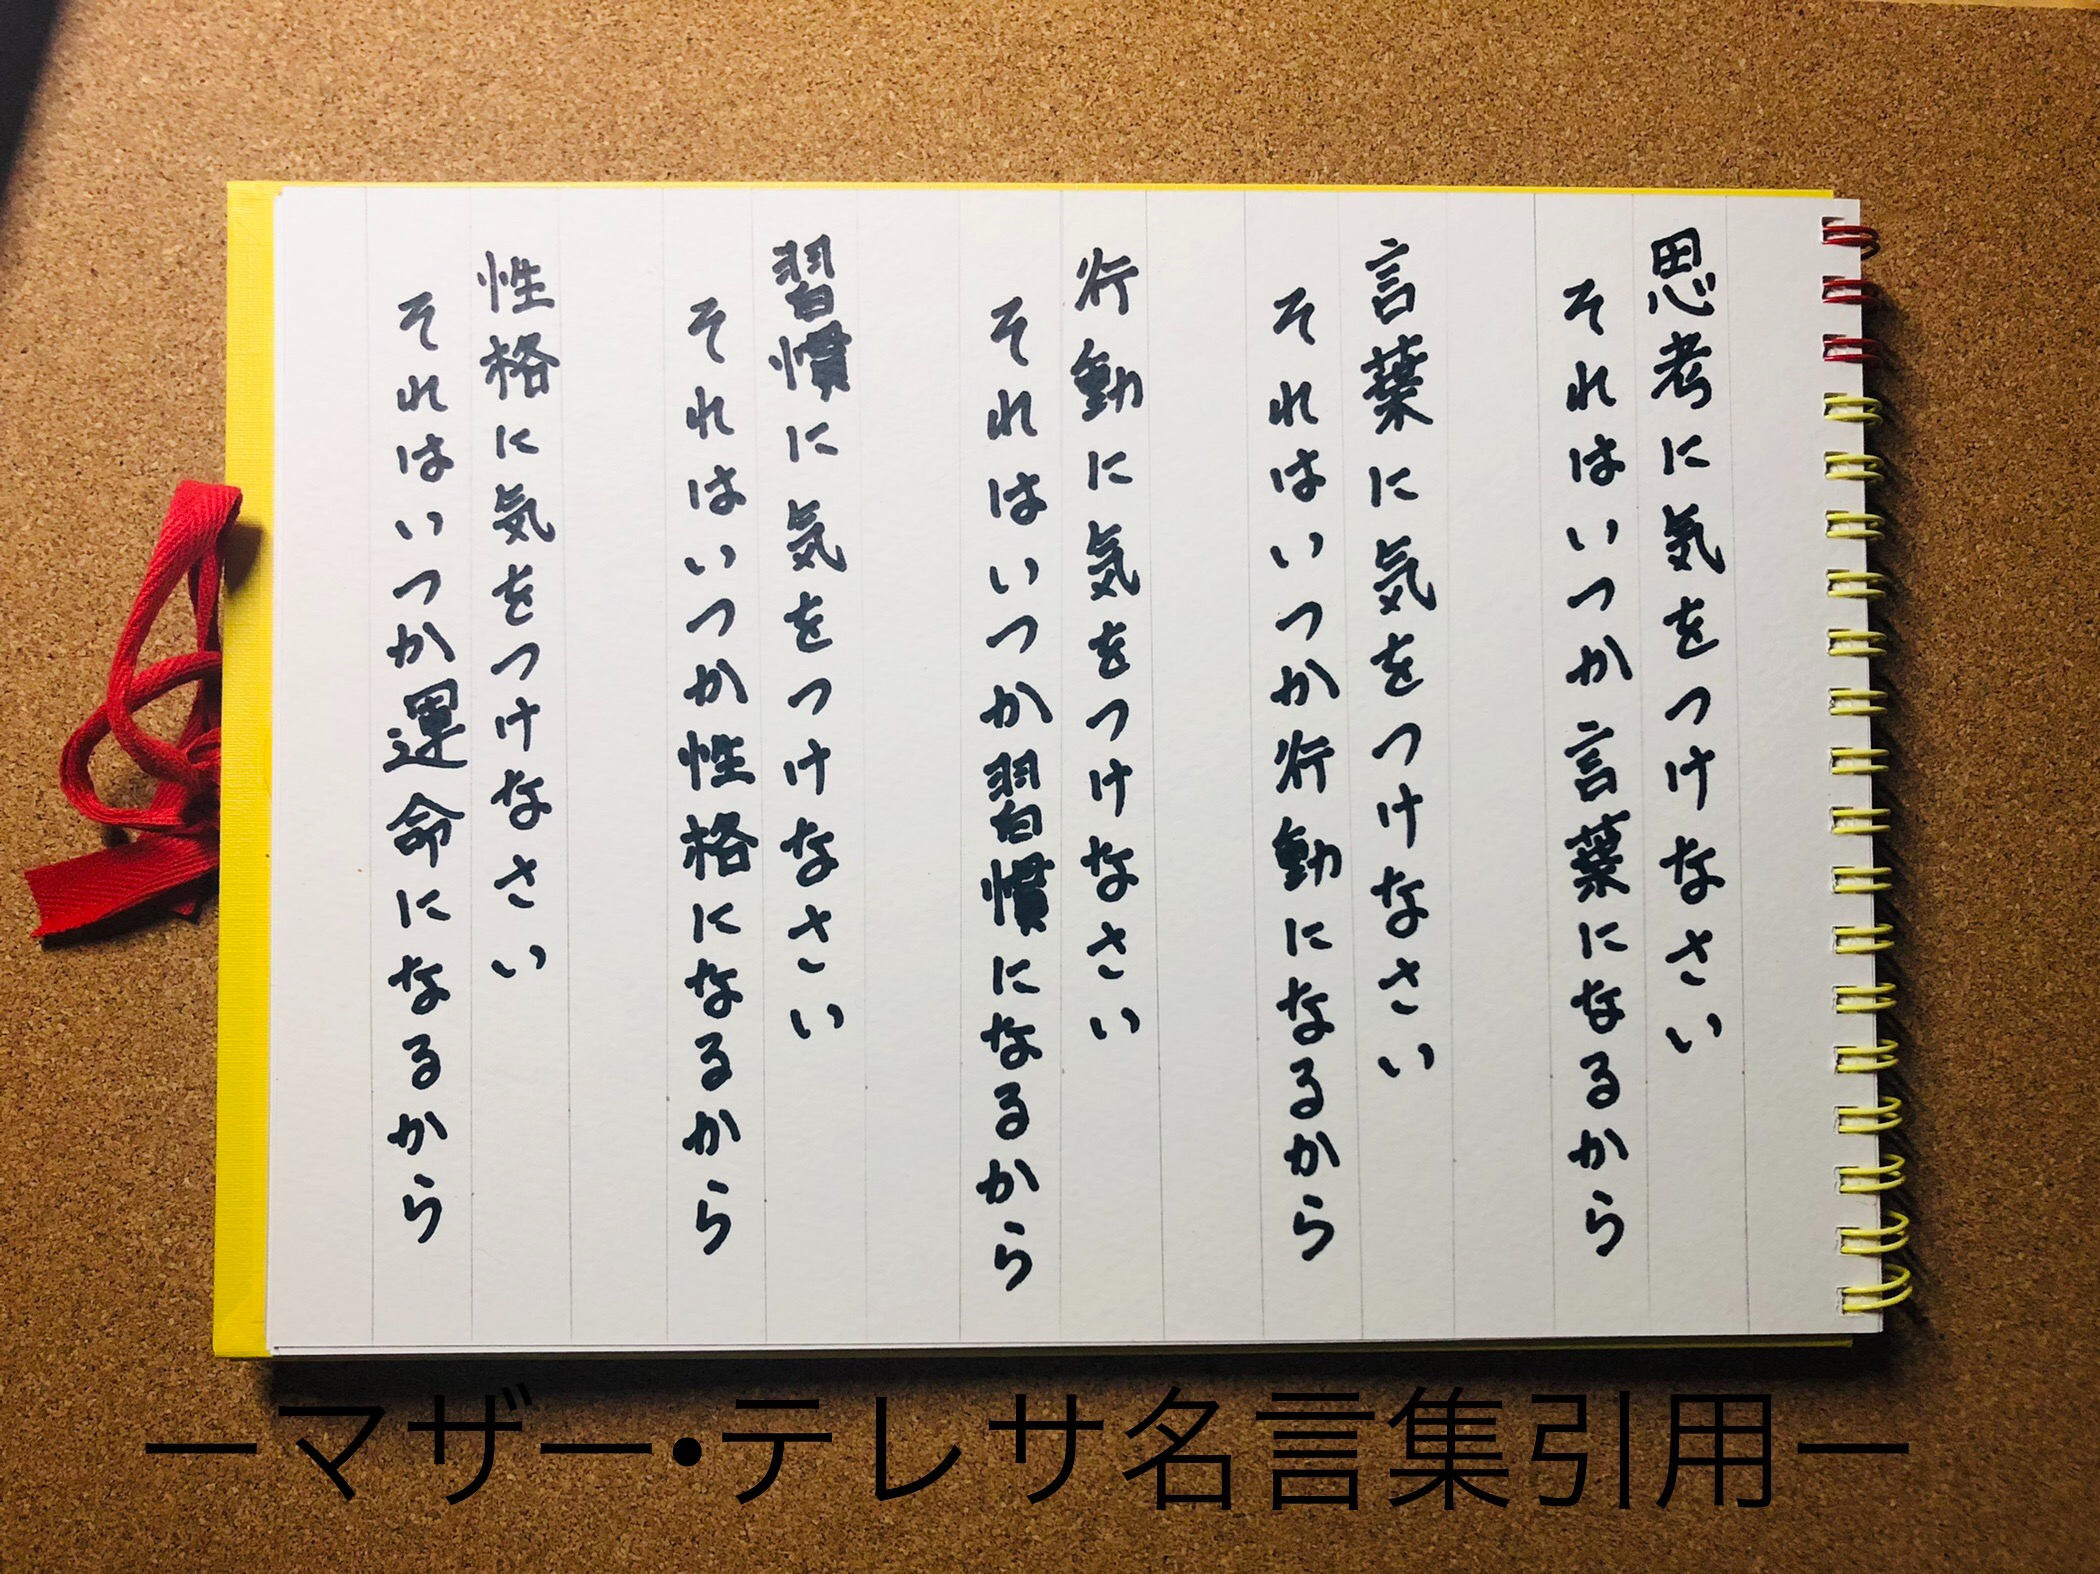 思考に気をつけなさい
それはいつか言葉になるから
言葉に気をつけなさい
それはいつか行動になるから
行動に気をつけなさい
それはいつか習慣になるから
習慣に気をつけなさい
それはいつか性格になるから
性格に気をつけなさい
それはいつか運命になるから
ーマザー•テレサ名言集引用ー